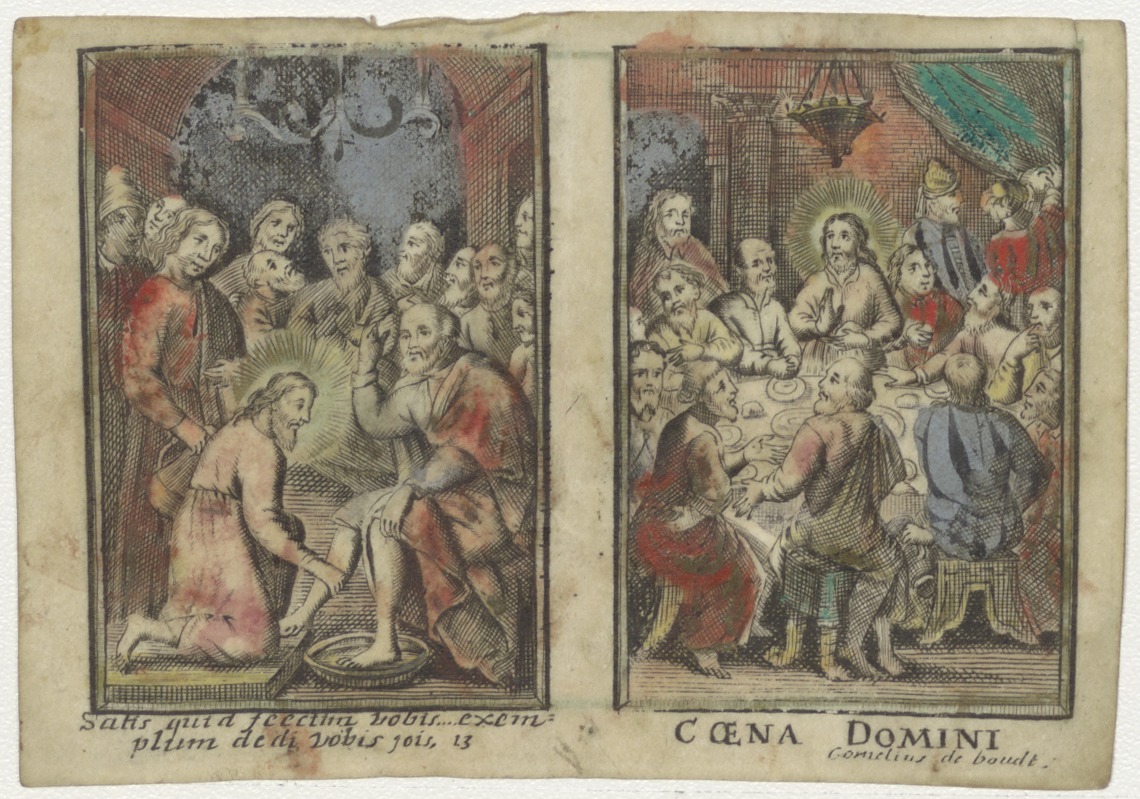 Satis quid feecim vobis...exem=
plum dedi vobis jois, 13
CŒNA DOMINI
Cornelius de boudt.